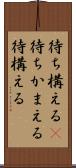 待ち構える
待ちかまえる
待構える